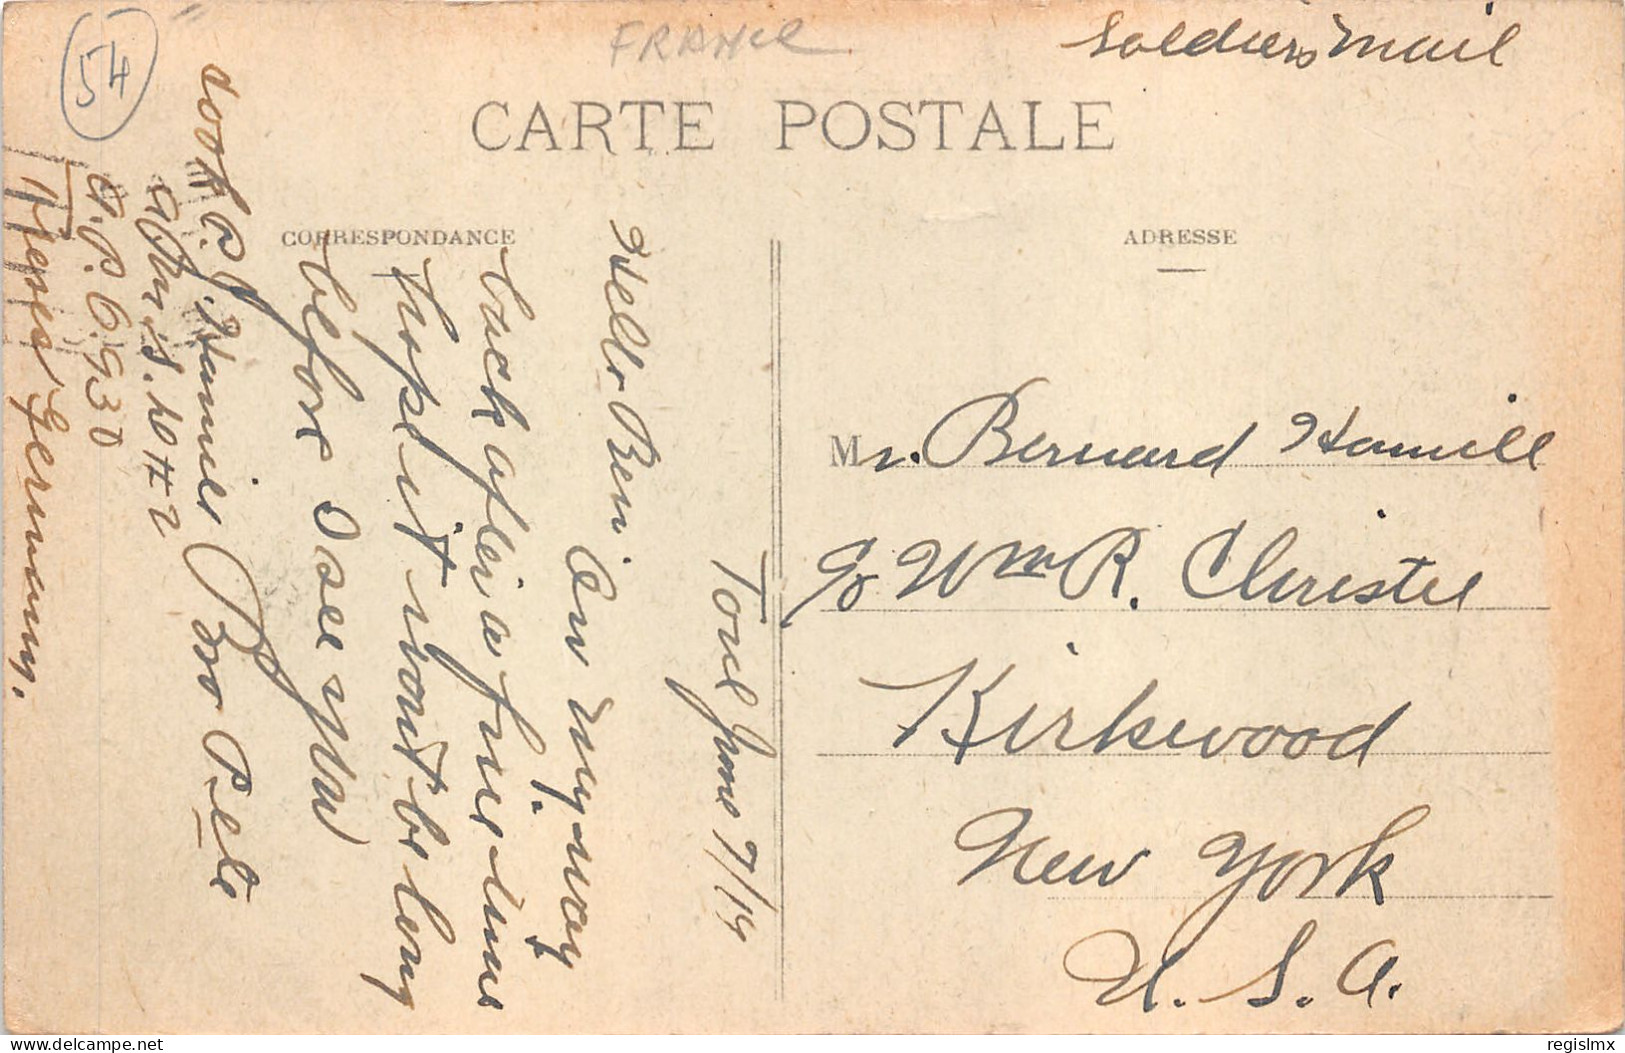 54
FRANCE
Soldiers Mail
CARTE POSTALE
CORRESPONDANCE
ADRESSE
Toul June 7/19
Hello Ben
On my way
back after a fine time
hope it wont be long
before I see you
Bro Pete
A.P.O. 930
Germany.
Mr. Bernard Hamill
c/o Wm R. Christie
Kirkwood
New York
U.S.A.
regislmx